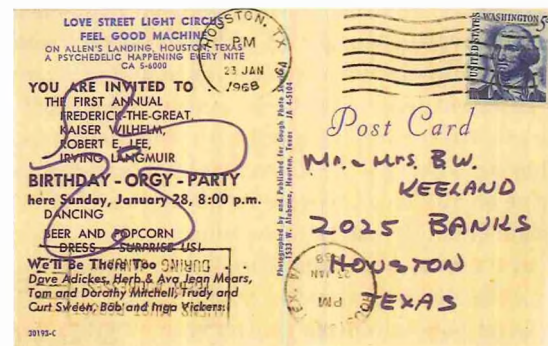 LOVE STREET LIGHT CIRCUS
FEEL GOOD MACHINE
ON ALLEN'S LANDING, HOUSTON, TEXAS
A PSYCHEDELIC HAPPENING EVERY NITE
CA 5-6000
YOU ARE INVITED TO . . .
THE FIRST ANNUAL
FREDERICK-THE-GREAT,
KAISER WILHELM,
ROBERT E. LEE,
IRVING LANGMUIR
BIRTHDAY - ORGY - PARTY
here Sunday, January 28, 8:00 p.m.
DANCING
BEER AND POPCORN
DRESS - SURPRISE US!
We'll Be There Too . . .
Dave Adickes, Herb & Ava Jean Mears,
Tom and Dorothy Mitchell, Trudy and
Curt Sween, Bob and Inga Vickers.
30193-C
HOUSTON, TX
PM
23 JAN
1968
Photographed by and Published for Gough Photo
1533 W. Alabama, Houston, Texas JA 4-5104
UNITED STATES
WASHINGTON 5
Post Card
Mr. & Mrs. B.W.
KEELAND
2025 BANKS
HOUSTON
TEXAS
PM
JAN
DURING